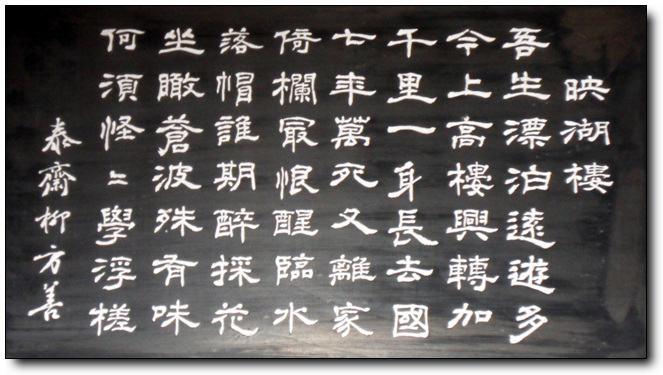 映湖樓
吾生漂泊遠遊多
今上高樓興轉加
千里一身長去國
七年萬死又離家
倚欄最恨醒臨水
落帽誰期醉採花
坐瞰蒼波殊有味
何須怪〻學浮槎
泰齋柳方善